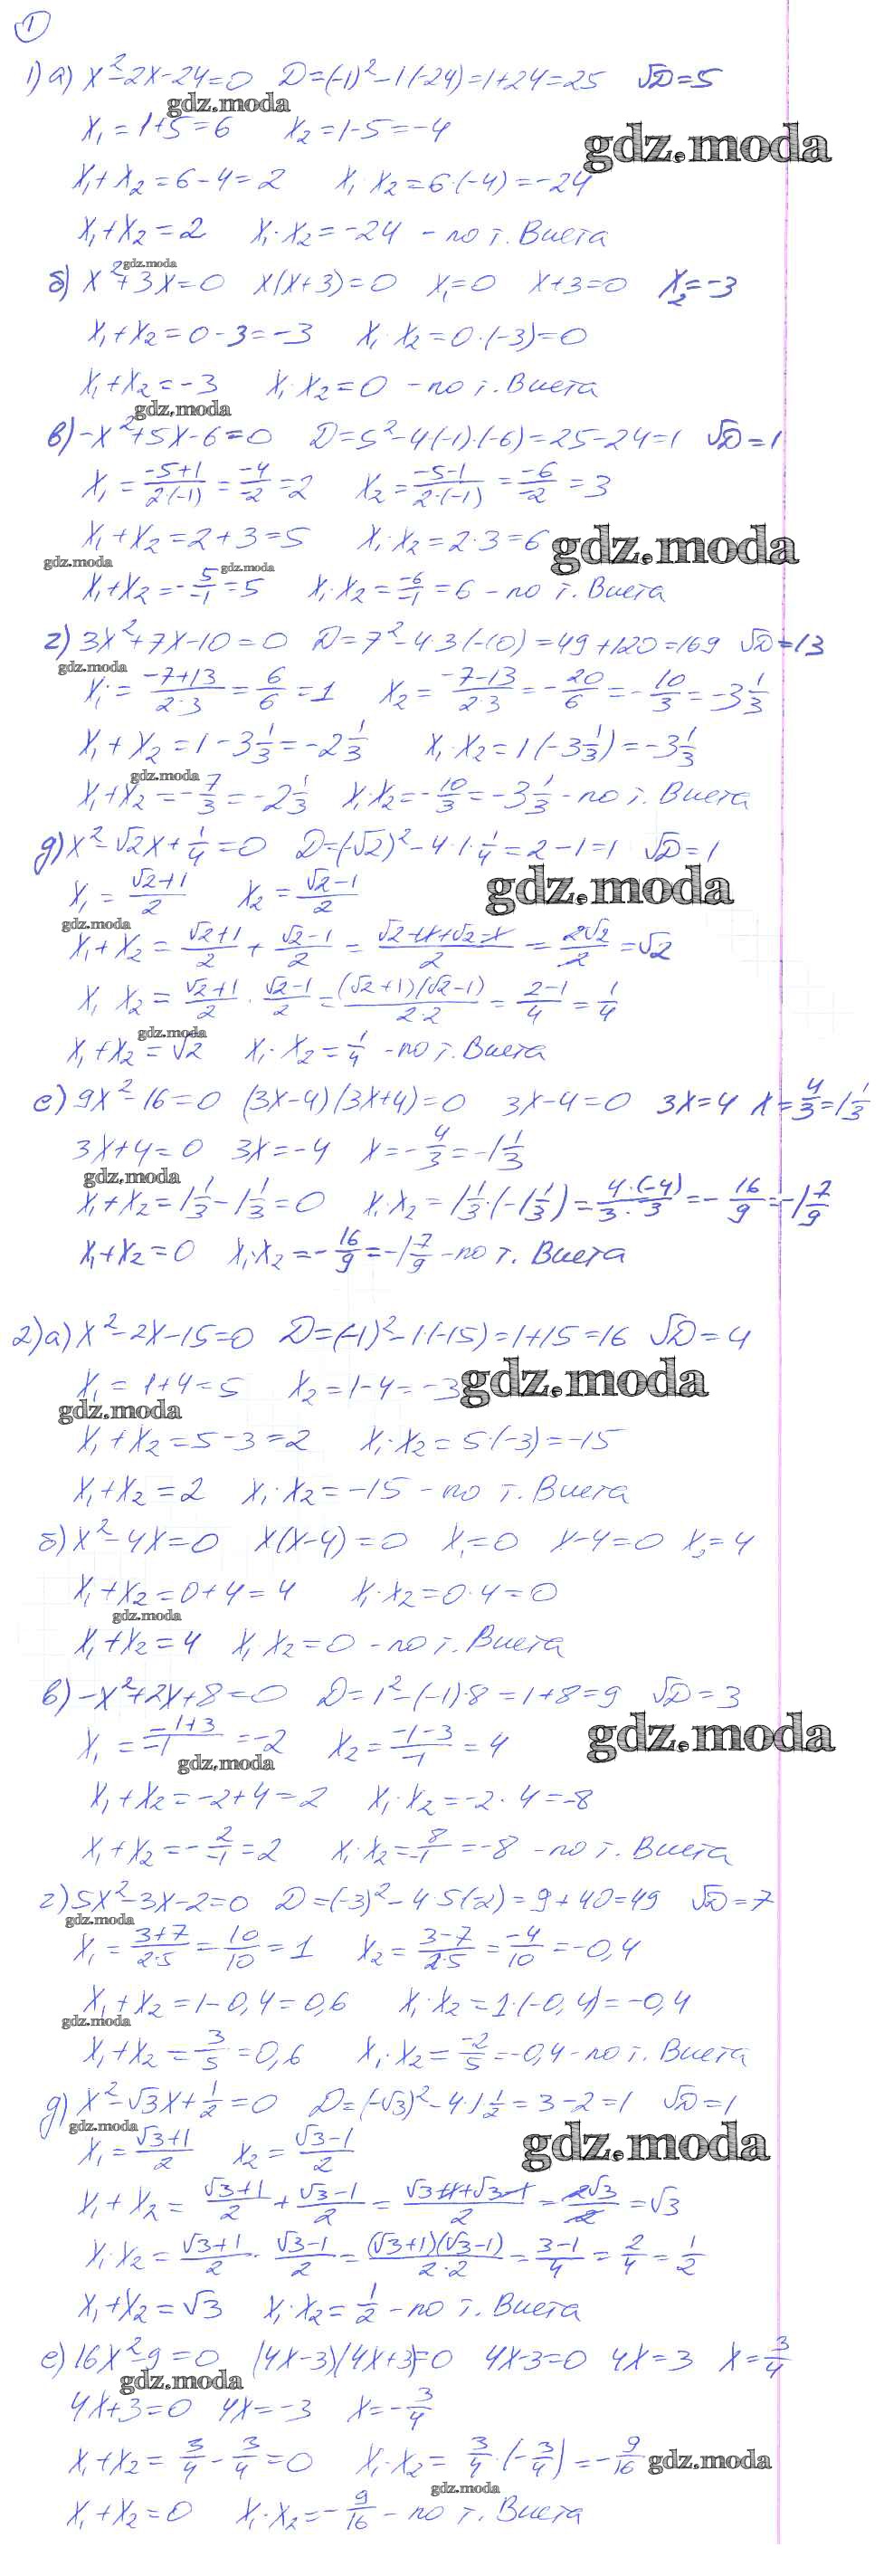 1
1) а) x²-2x-24=0 D=(-1)²-1(-24)=1+24=25 √D=5
gdz.moda
x₁=1+5=6 x₂=1-5=-4
gdz.moda
x₁+x₂=6-4=2 x₁·x₂=6·(-4)=-24
x₁+x₂=2 x₁·x₂=-24 - по т. Виета
gdz.moda
б) x²+3x=0 x(x+3)=0 x₁=0 x+3=0 x₂=-3
x₁+x₂=0-3=-3 x₁·x₂=0·(-3)=0
x₁+x₂=-3 x₁·x₂=0 - по т. Виета
gdz.moda
в) -x²+5x-6=0 D=5²-4(-1)·(-6)=25-24=1 √D=1
x₁=(-5+1)/(2·(-1))=-4/-2=2 x₂=(-5-1)/(2·(-1))=-6/-2=3
x₁+x₂=2+3=5 x₁·x₂=2·3=6
gdz.moda
gdz.moda
gdz.moda
x₁+x₂=-5/-1=5 x₁·x₂=-6/-1=6 - по т. Виета
г) 3x²+7x-10=0 D=7²-4·3(-10)=49+120=169 √D=13
gdz.moda
x₁=(-7+13)/(2·3)=6/6=1 x₂=(-7-13)/(2·3)=-20/6=-10/3=-3 1/3
x₁+x₂=1-3 1/3=-2 1/3 x₁·x₂=1(-3 1/3)=-3 1/3
gdz.moda
x₁+x₂=-7/3=-2 1/3 x₁·x₂=-10/3=-3 1/3 - по т. Виета
д) x²-√2x+1/4=0 D=(-√2)²-4·1·1/4=2-1=1 √D=1
x₁=(√2+1)/2 x₂=(√2-1)/2
gdz.moda
gdz.moda
x₁+x₂=(√2+1)/2+(√2-1)/2=(√2+1+√2-1)/2=2√2/2=√2
x₁ x₂=(√2+1)/2·(√2-1)/2=(√2+1)(√2-1)/(2·2)=(2-1)/4=1/4
gdz.moda
x₁+x₂=√2 x₁·x₂=1/4 - по т. Виета
е) 9x²-16=0 (3x-4)(3x+4)=0 3x-4=0 3x=4 x=4/3=1 1/3
3x+4=0 3x=-4 x=-4/3=-1 1/3
gdz.moda
x₁+x₂=1 1/3-1 1/3=0 x₁·x₂=1 1/3·(-1 1/3)=4·(-4)/(3·3)=-16/9=-1 7/9
x₁+x₂=0 x₁·x₂=-16/9=-1 7/9 - по т. Виета
2) а) x²-2x-15=0 D=(-1)²-1·(-15)=1+15=16 √D=4
x₁=1+4=5 x₂=1-4=-3
gdz.moda
gdz.moda
x₁+x₂=5-3=2 x₁·x₂=5·(-3)=-15
x₁+x₂=2 x₁·x₂=-15 - по т. Виета
б) x²-4x=0 x(x-4)=0 x₁=0 x-4=0 x₂=4
x₁+x₂=0+4=4 x₁·x₂=0·4=0
gdz.moda
x₁+x₂=4 x₁ x₂=0 - по т. Виета
в) -x²+2x+8=0 D=1²-(-1)·8=1+8=9 √D=3
x₁=(-1+3)/-1=-2 x₂=(-1-3)/-1=4
gdz.moda
gdz.moda
x₁+x₂=-2+4=2 x₁·x₂=-2·4=-8
x₁+x₂=-2/-1=2 x₁·x₂=8/-1=-8 - по т. Виета
г) 5x²-3x-2=0 D=(-3)²-4·5(-2)=9+40=49 √D=7
gdz.moda
x₁=(3+7)/(2·5)=10/10=1 x₂=(3-7)/(2·5)=-4/10=-0,4
x₁+x₂=1-0,4=0,6 x₁·x₂=1·(-0,4)=-0,4
gdz.moda
x₁+x₂=3/5=0,6 x₁·x₂=-2/5=-0,4 - по т. Виета
д) x²-√3x+1/2=0 D=(-√3)²-4·1·1/2=3-2=1 √D=1
gdz.moda
x₁=(√3+1)/2 x₂=(√3-1)/2
gdz.moda
x₁+x₂=(√3+1)/2+(√3-1)/2=(√3+1+√3-1)/2=2√3/2=√3
x₁·x₂=(√3+1)/2·(√3-1)/2=(√3+1)(√3-1)/(2·2)=(3-1)/4=2/4=1/2
x₁+x₂=√3 x₁·x₂=1/2 - по т. Виета
е) 16x²-9=0 (4x-3)(4x+3)=0 4x-3=0 4x=3 x=3/4
gdz.moda
4x+3=0 4x=-3 x=-3/4
x₁+x₂=3/4-3/4=0 x₁·x₂=3/4·(-3/4)=-9/16
gdz.moda
gdz.moda
x₁+x₂=0 x₁·x₂=-9/16 - по т. Виета